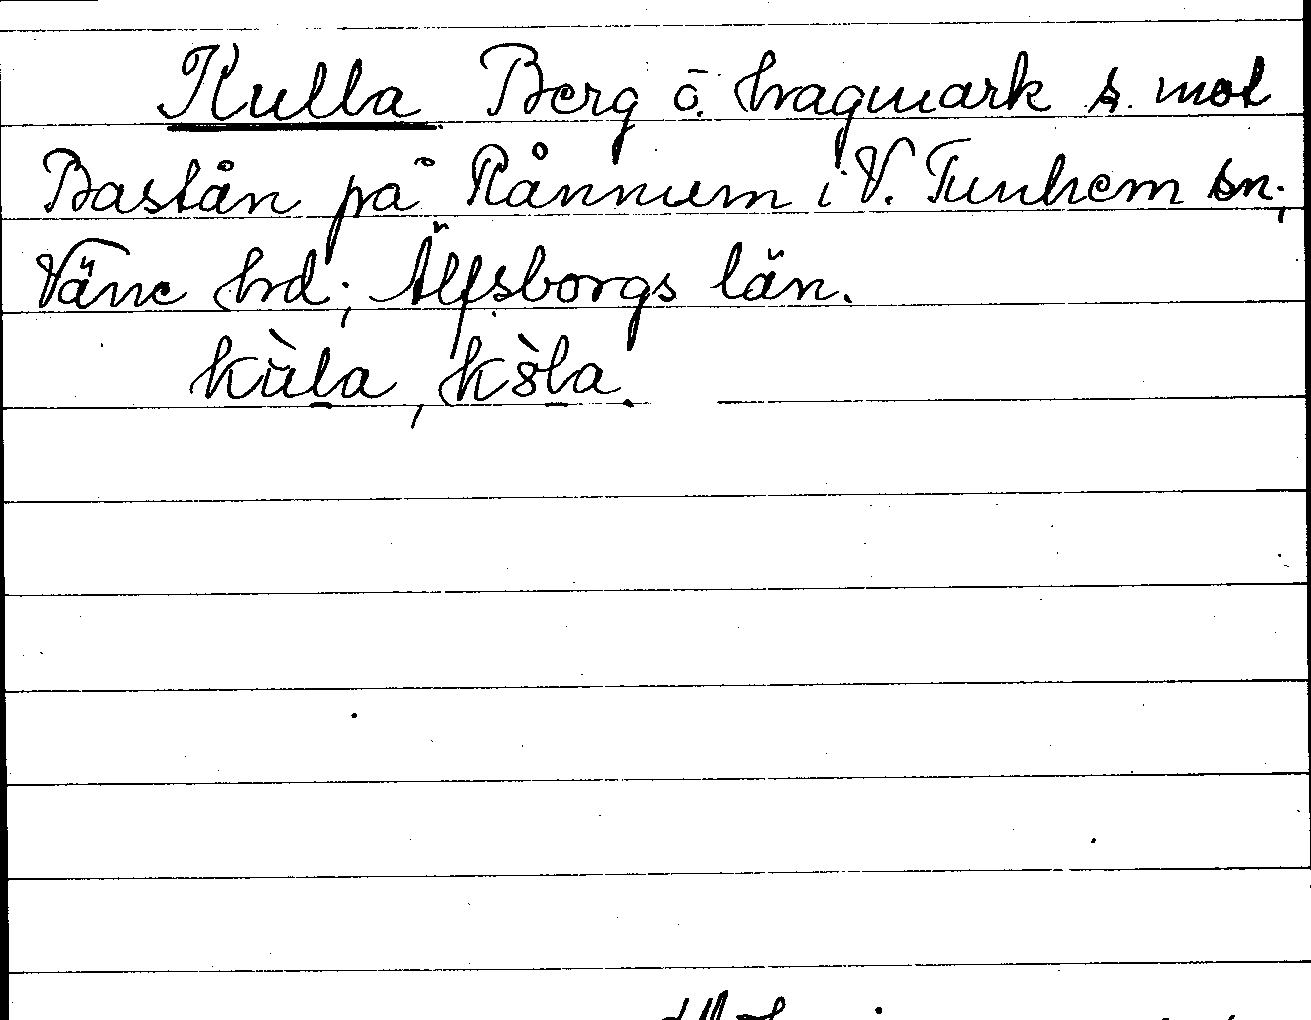 Kulla. Berg o. hagmark s. mot
Bastån på Rånnum i V. Tunhem sn;
Väne hd; Älfsborgs län.
kùla,